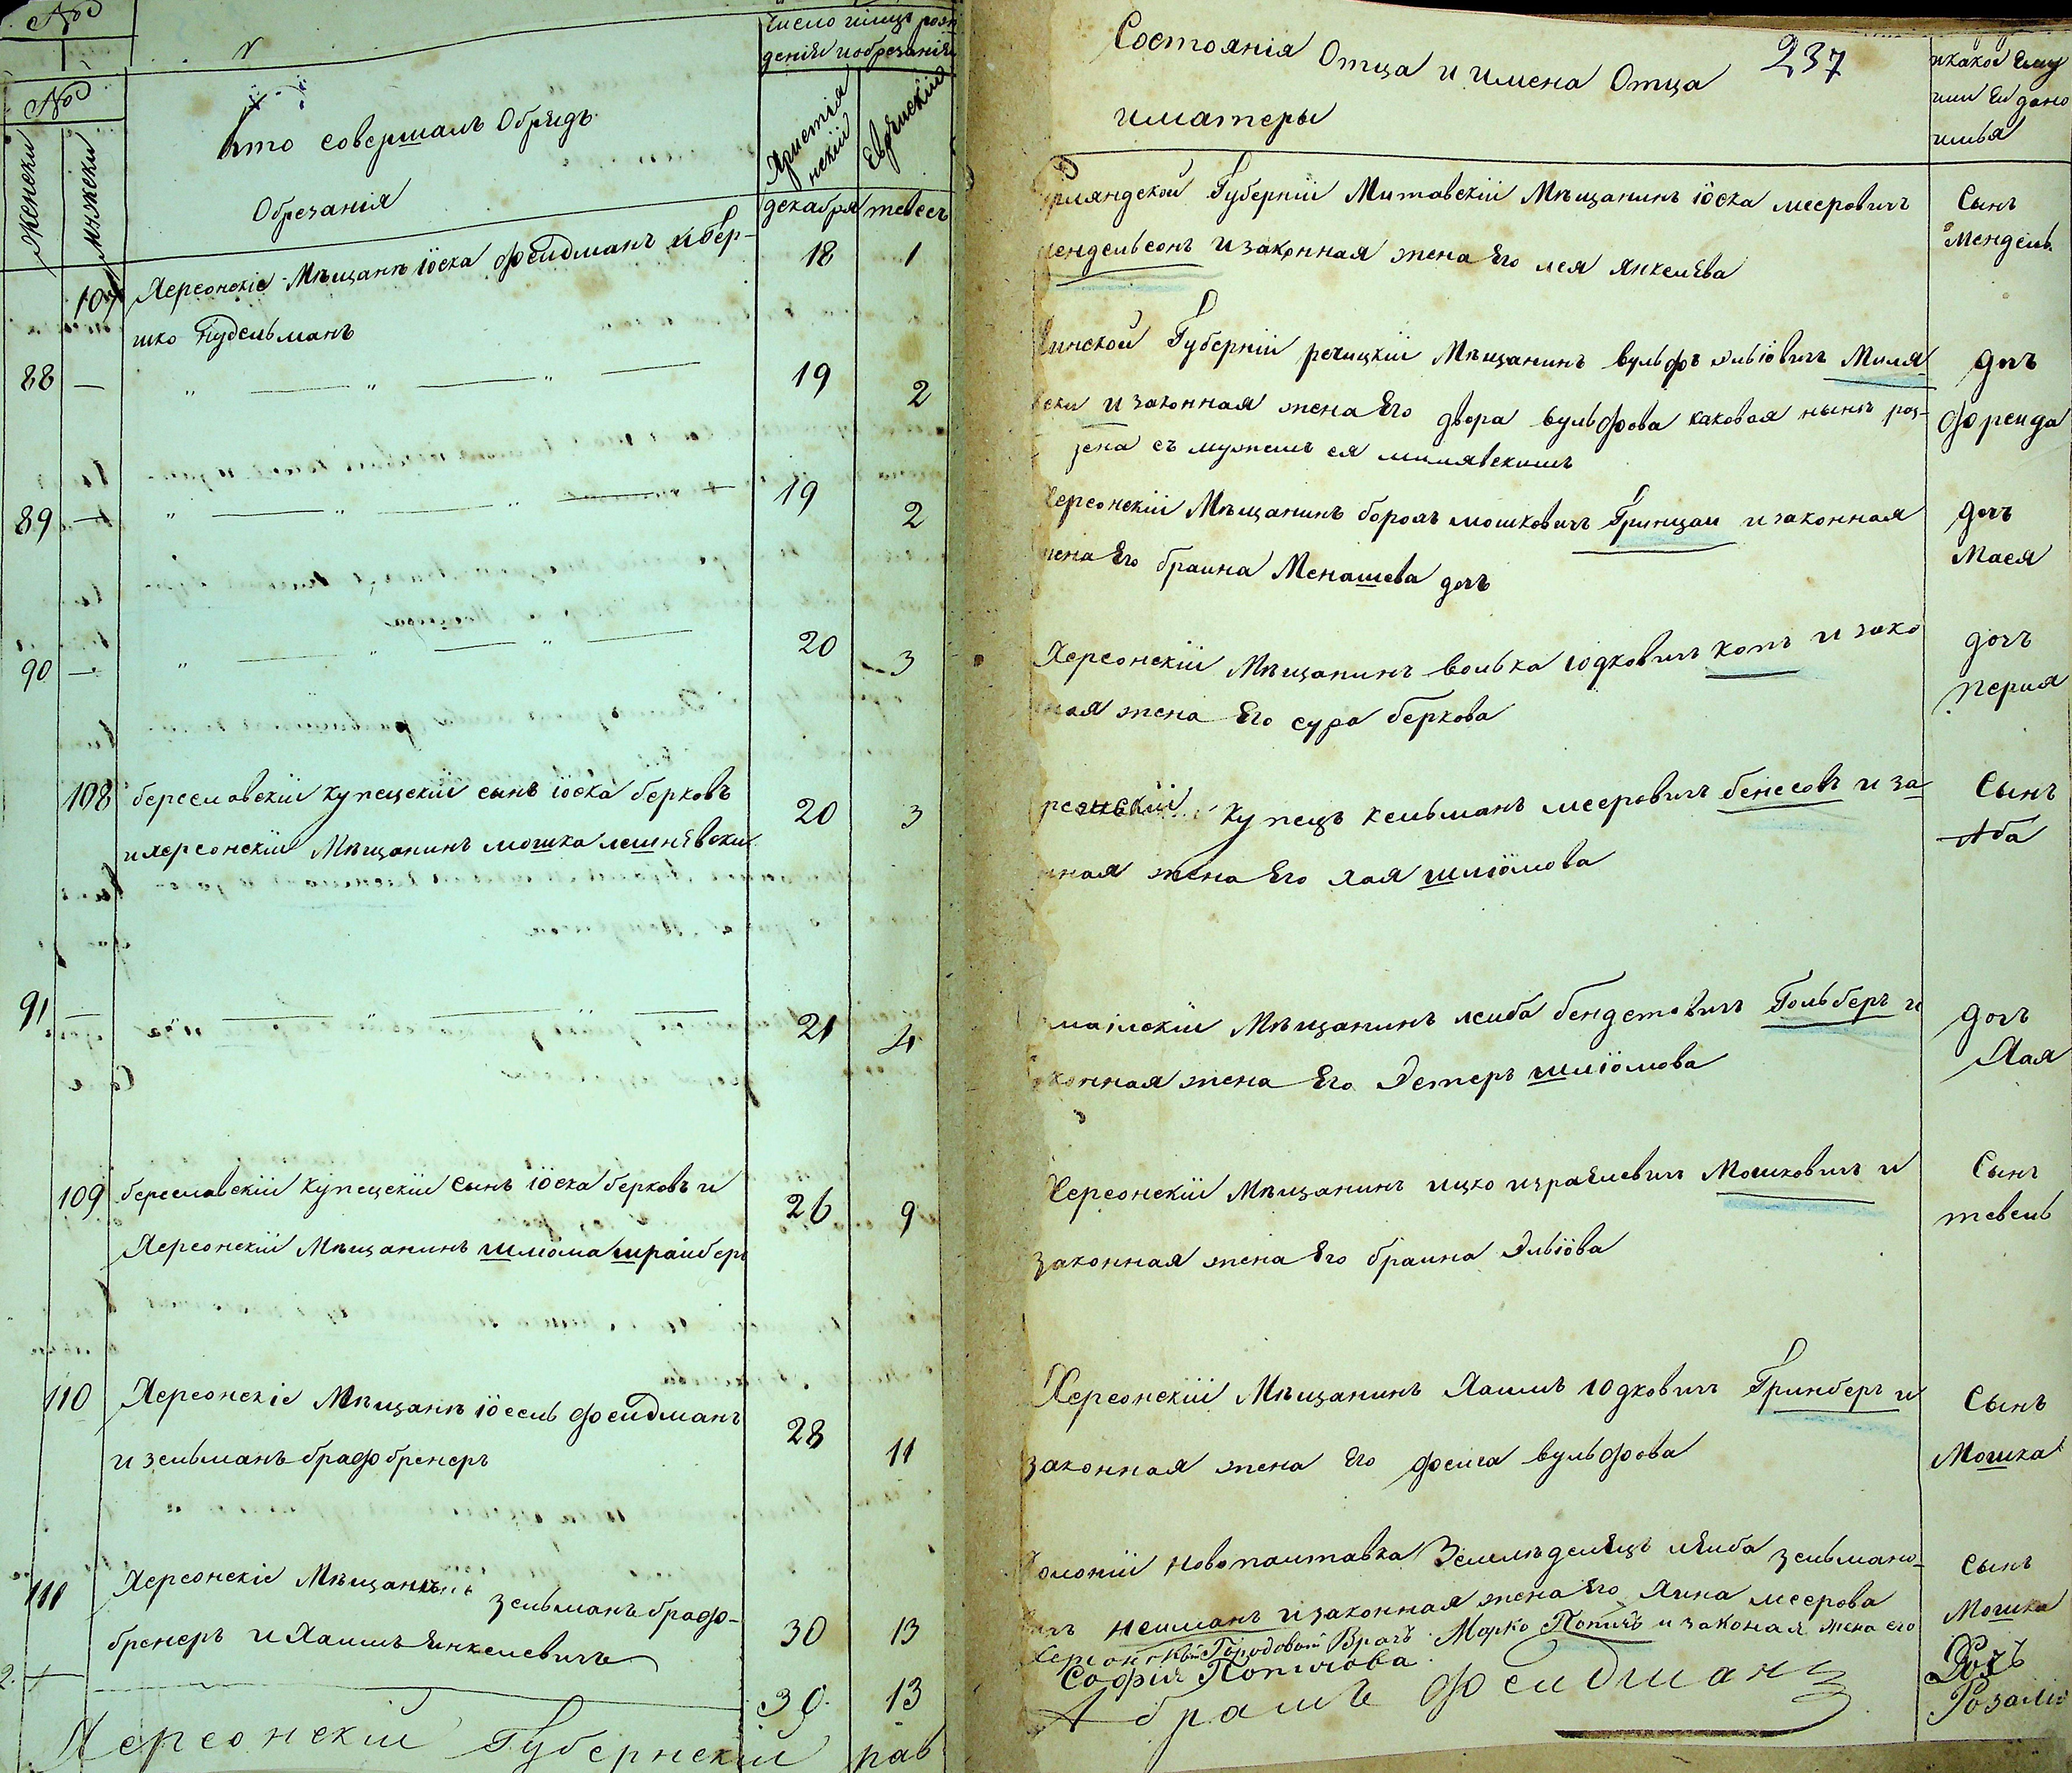 №
№
женски
мужски
Кто совершалъ Обрядъ
Обрезанія
Число и мѣсяцъ рож
денія и обрезанія
Христіа
нскій
Еврейскій
декабря
тевесъ
107 Херсонскіе Мѣщанѣ іоска фейдманъ и бер-
шко Кудельманъ
18 1
88 — „ — „ — „ — 19 2
89 — „ — „ — „ — 19 2
90 — „ — „ — „ — 20 3
108 береславскій купецскій сынъ іоска берковъ
и херсонскій Мѣщанинъ мошка лешневски
20 3
91 — — „ — „ — 21 4
109 береславскій купецскій сынъ іоска берковъ и
Херсонскій Мѣщанинъ шлома шрайберъ
26 9
110 Херсонскіе Мѣщанѣ іосель фейдманъ
и зельманъ брафбренеръ
28 11
111 Херсонскіе Мѣщанинъ зельманъ браф-
бренеръ и Хаимъ Янкелевичъ
30 13
2. 30 13
Херсонскій Губернскій рав
Состоянія Отца и имена Отца 237
и матеры
и какое Ему
или Ей дано
имья
урляндской Губерніи Митавскій Мѣщанинъ іоска мееровичъ
мендельсонъ и законная жена Его лея янкелева
Сынъ
Мендель
Минской Губерніи речицкій Мѣщанинъ вульфъ эльіовичъ Миля
вски и законная жена Его двора вульфова каковая нынѣ роз-
зена съ мужемъ ея милявскимъ
дочъ
фреида
Херсонскій Мѣщанинъ борохъ мошковичъ Гринцаи и законная
жена Его браина Менашева дочъ
дочъ
Мася
Херсонскій Мѣщанинъ волька іодковичъ копъ и зако
ная жена Его сура беркова
дочъ
перия
рсонскій купецъ кельманъ мееровичъ бенесовъ и за
нная жена Его хая шліомова
Сынъ
Аба
маилскій Мѣщанинъ леиба бендетовичъ Гольберъ и
аконная жена Его Эстеръ шліомова
дочъ
Хая
Херсонскій Мѣщанинъ ицко израилевичъ Мошковичъ и
законная жена Его браина Эльіова
Сынъ
тевель
Херсонскій Мѣщанинъ Хаимъ юдковичъ Гринберъ и
законная жена Его феига вульфова
Сынъ
Мошка
Колоніи Новополтавка Земледелецъ лейба зельмано-
вичъ нейманъ и законная жена Его Хина меерова
Сынъ
Мошка
Херсонскій Городовой Врачъ Марко Попичъ и законая жена его
Софія Попичова
Дочъ
Розалія
Абрамъ Фейдманъ